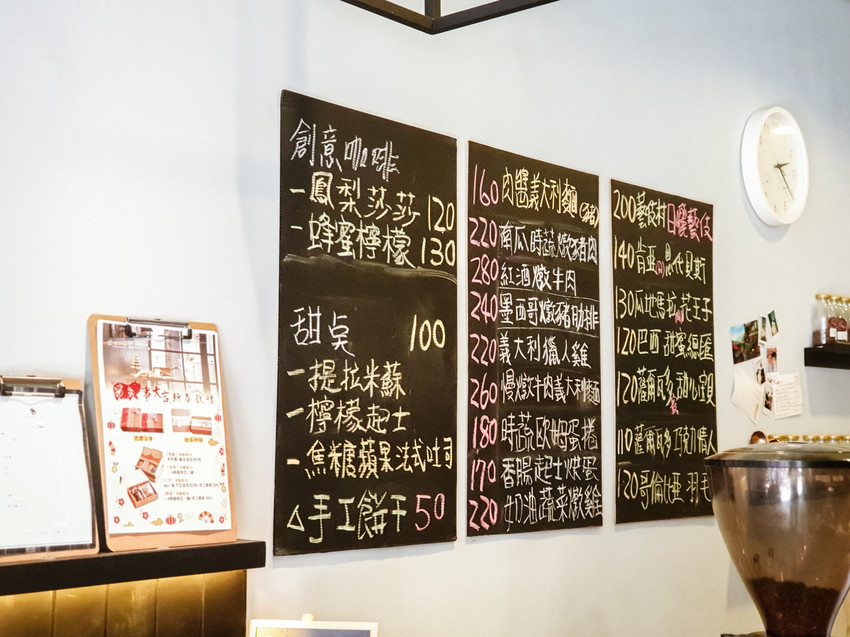 創意咖啡
－鳳梨莎莎 120
－蜂蜜檸檬 130
甜点 100
－提拉米蘇
－檸檬起士
－焦糖蘋果法式吐司
△手工餅干 50
160 肉醬義大利麵
220 南瓜時蔬燉豬肉
280 紅酒燉牛肉
240 墨西哥燉豬肋排
220 義大利獵人雞
260 慢燉牛肉義大利麵
180 時蔬歐姆蛋捲
170 香腸起士烘蛋
220 奶油蔬菜燉雞
200 藝伎村 日曬藝伎
140 肯亞 恩代貝斯
130 瓜地馬拉 花王子
120 巴西 甜蜜總匯
120 薩爾瓦多 甜心寶貝
110 薩爾瓦多 巧克力情人
120 哥倫比亞 羽毛